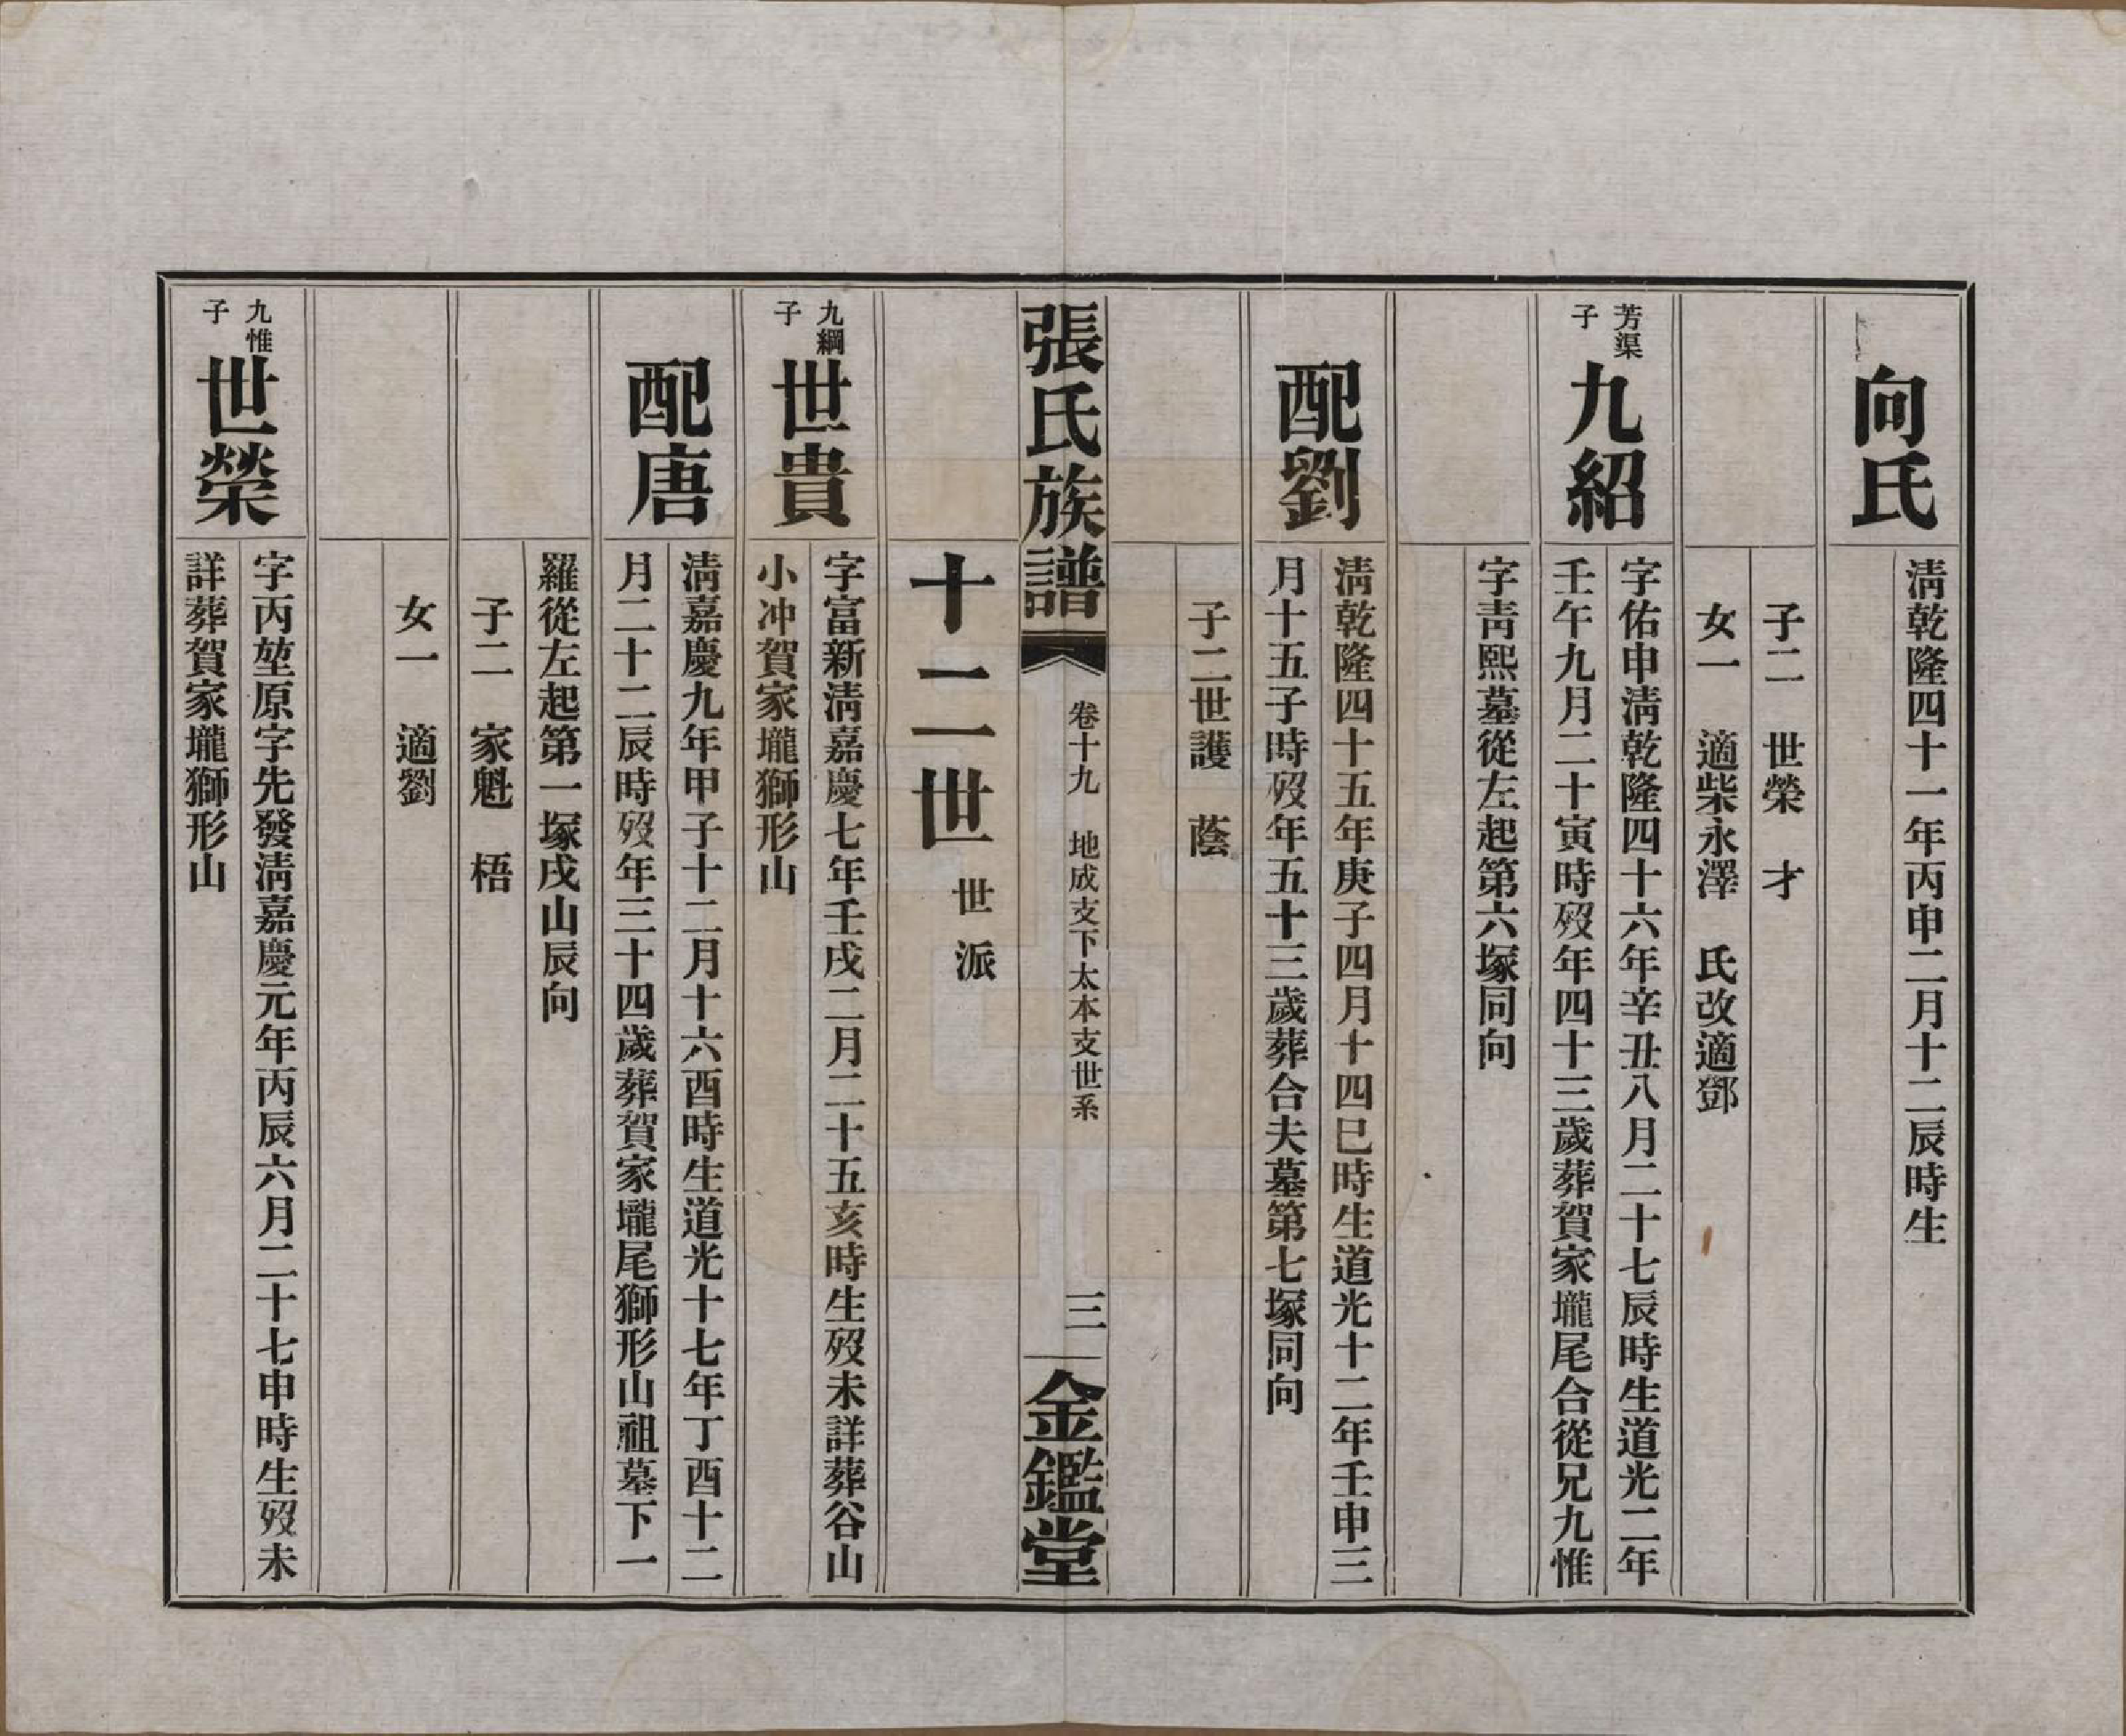 向氏
清乾隆四十一年丙申二月十二辰時生
子二　世榮　才
女一　適柴永澤　氏改適鄧
芳渠
子
九紹
字佑申清乾隆四十六年辛丑八月二十七辰時生道光二年
壬午九月二十寅時歿年四十三歲葬賀家壠尾合從兄九惟
字靑熙墓從左起第六塚同向
配劉
清乾隆四十五年庚子四月十四巳時生道光十二年壬申三
月十五子時歿年五十三歲葬合夫墓第七塚同向
子二世護　蔭
張氏族譜
卷十九　地成支下太本支世系
三
金鑑堂
十二世
世派
九綱
子
世貴
字富新清嘉慶七年壬戌二月二十五亥時生歿未詳葬谷山
小冲賀家壠獅形山
配唐
清嘉慶九年甲子十二月十六酉時生道光十七年丁酉十二
月二十二辰時歿年三十四歲葬賀家壠尾獅形山祖墓下一
羅從左起第一塚戌山辰向
子二　家魁　梧
女一　適劉
九惟
子
世榮
字丙堃原字先發清嘉慶元年丙辰六月二十七申時生歿未
詳葬賀家壠獅形山